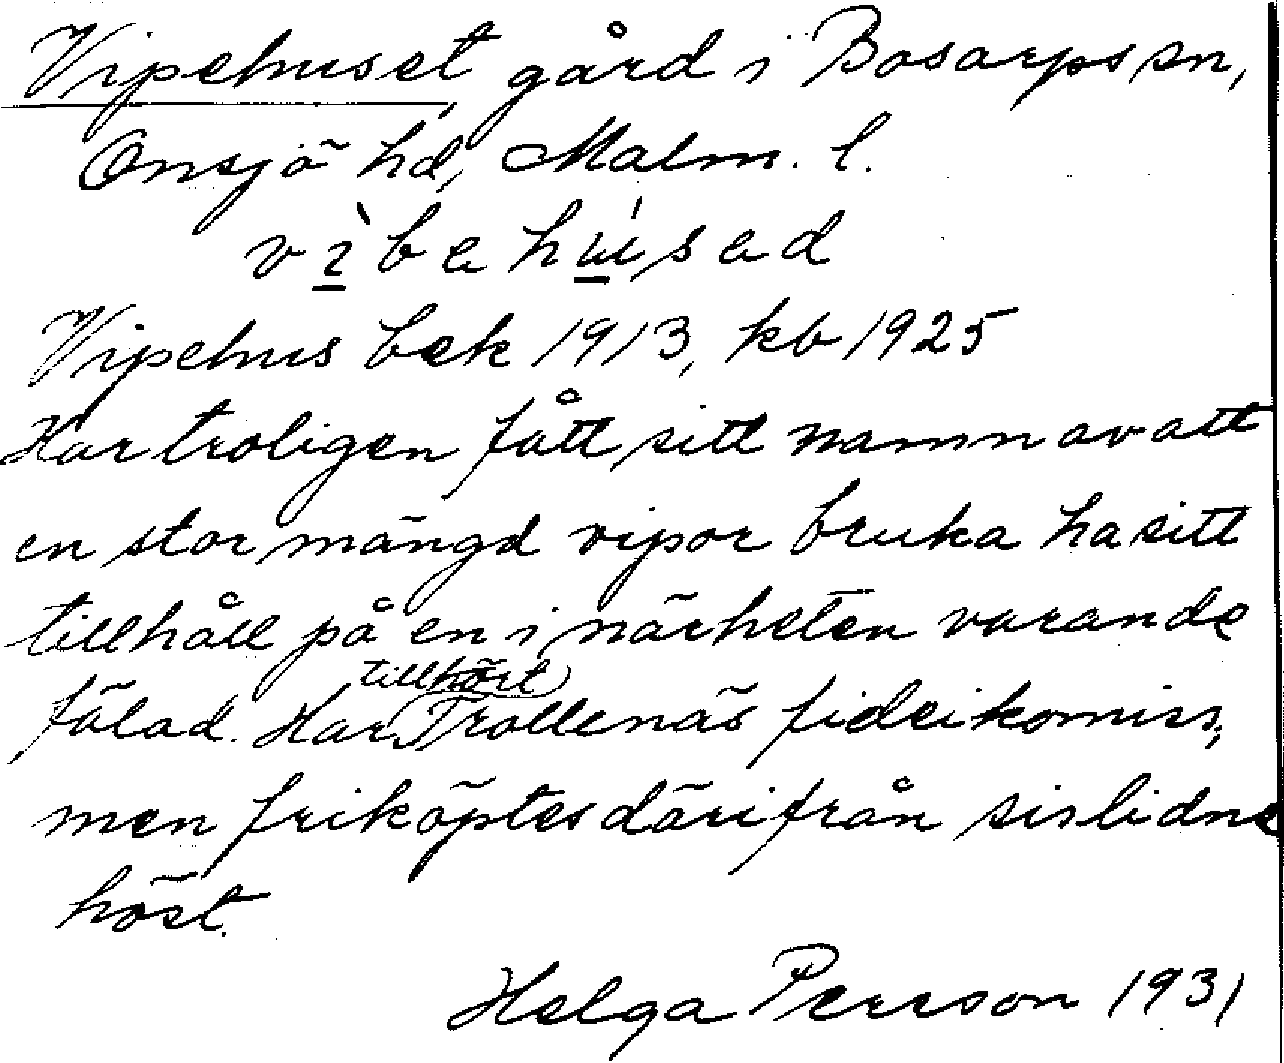 Vipehuset, gård i Bosarps sn,
Onsjö hd, Malm. l.
vìbahúsad
Vipehus bek 1913, kb 1925
Har troligen fått sitt namn av att
en stor mängd vipor bruka ha sitt
tillhåll på en i närheten varande
fälad. Har tillhört Trollenäs fideikomiss,
men friköptes därifrån sislidne
höst.
Helga Persson 1931